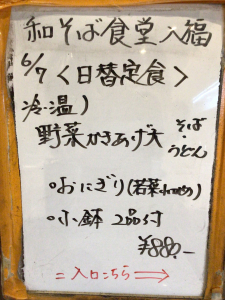 和そば食堂 入福
6/7 <日替定食>
冷・温)
野菜かきあげ天 そば・うどん
・おにぎり(若菜
・小鉢 2品付
¥880.-
= 入口こちら→